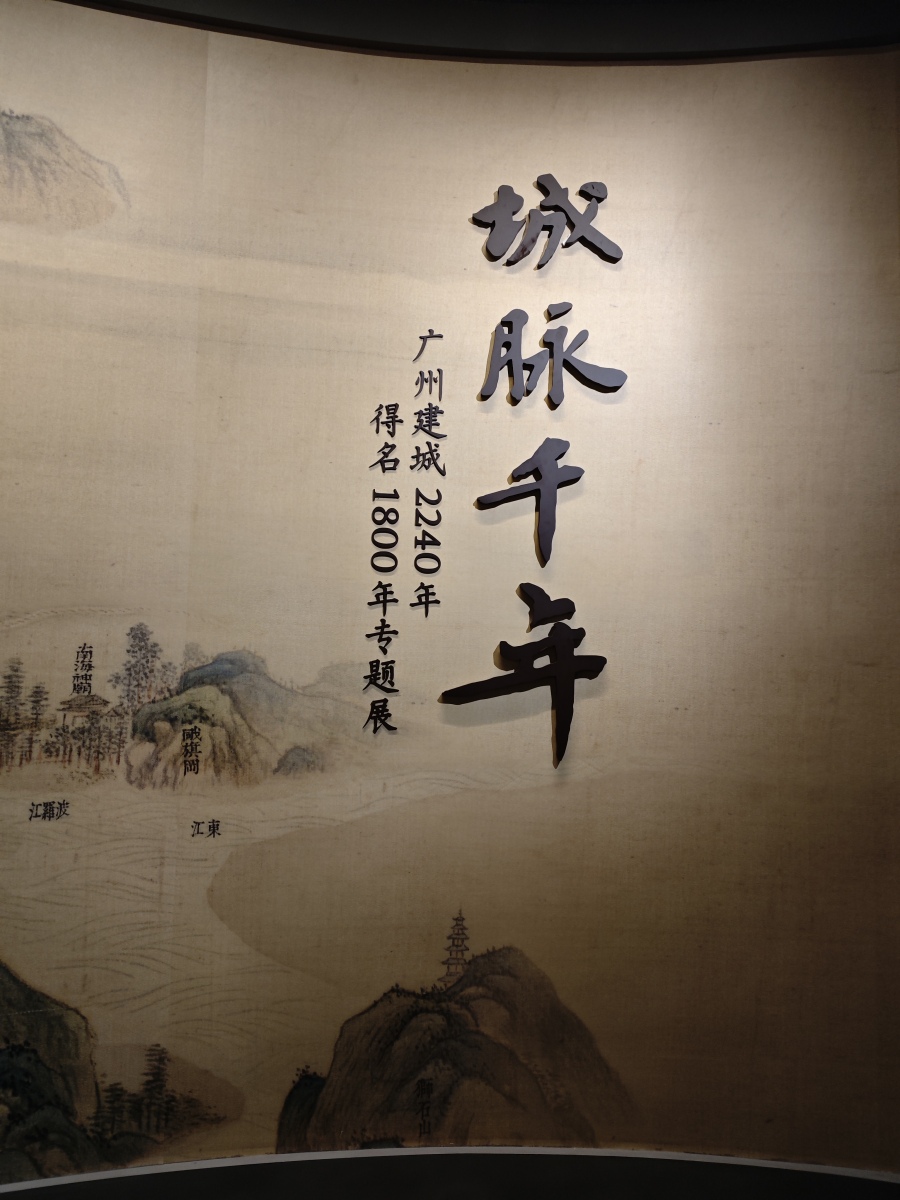 城脉千年
广州建城2240年
得名1800年专题展
南海神廟
江東
波羅江